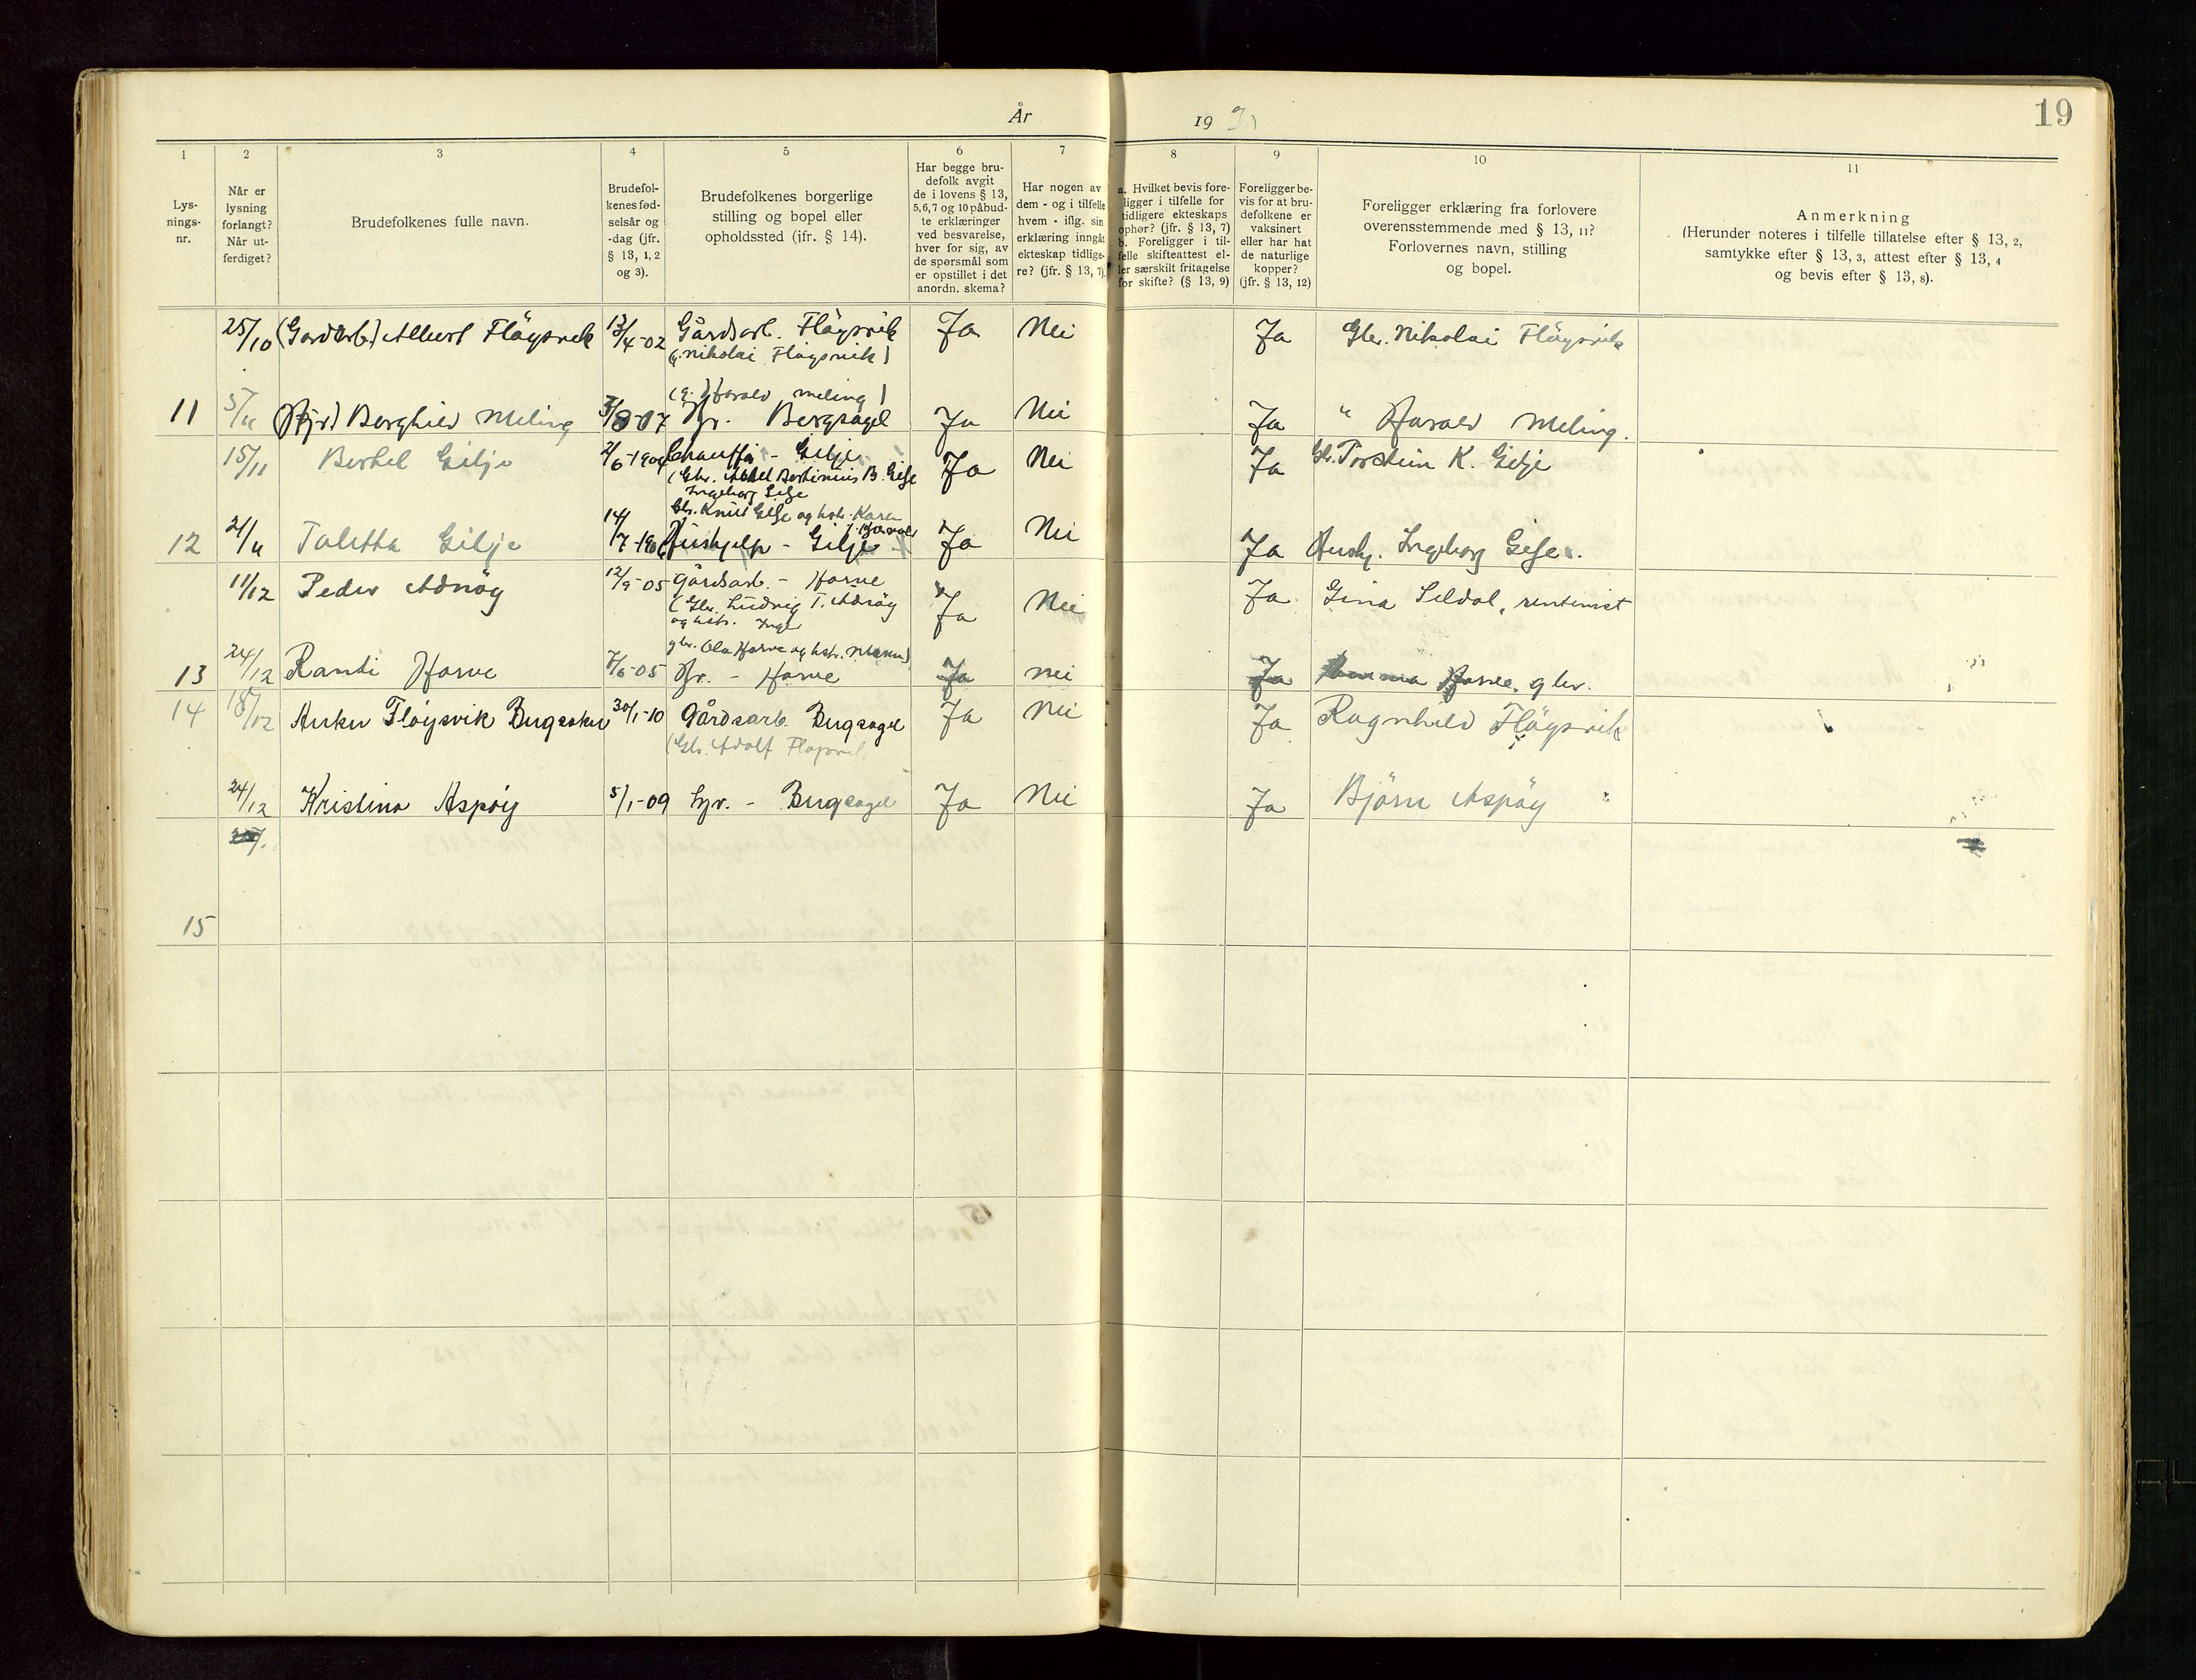 19
År 19
1
Lys-
nings-
nr.
2
Når er
lysning
forlangt?
Når ut-
ferdiget?
3
Brudefolkenes fulle navn.
4
Brudefol-
kenes fød-
selsår og
-dag (jfr.
§ 13, 1, 2
og 3).
5
Brudefolkenes borgerlige
stilling og bopel eller
opholdssted (jfr. § 14).
6
Har begge bru-
defolk avgit
de i lovens § 13,
5,6,7 og 10 påbud-
te erklæringer
ved besvarelse,
hver for sig, av
de spørsmål som
er opstillet i det
anordn. skema?
7
Har nogen av
dem - og i tilfelle
hvem - iflg. sin
erklæring inngåt
ekteskap tidlige-
re? (jfr. § 13, 7).
8
a. Hvilket bevis fore-
ligger i tilfelle for
tidligere ekteskaps
ophør? (jfr. § 13, 7)
b. Foreligger i til-
felle skifteattest el-
ler særskilt fritagelse
for skifte? (§ 13, 9)
9
Foreligger be-
vis for at bru-
defolkene er
vaksinert
eller har hat
de naturlige
kopper?
(jfr. § 13, 12)
10
Foreligger erklæring fra forlovere
overensstemmende med § 13, 11?
Forlovernes navn, stilling
og bopel.
11
Anmerkning
(Herunder noteres i tilfelle tillatelse efter § 13, 2,
samtykke efter § 13, 3, attest efter § 13, 4
og bevis efter § 13, 8).
25/10 (Gardarb.) Albert Fløysvik 13/4-02 Gårdsarb. Fløysvik Ja Nei Ja Gbr. Nikolai Fløysvik
(g. Nikolai Fløysvik)
(g. Harald Meling)
11 5/11 Borghild Meling 8-07 Hr. Bergsagel Ja Nei Ja " Harald Meling.
15/11 Bertel Gilje Chauffør - Gilje Ja Nei Ja Gbr. Torstein K. Gilje
(Gbr. Bertinius B. Gilje
Ingeborg Gilje
Gbr. Knut Gilje og hstr. Karen
12 21/11 Taletta Gilje 14/7 Hushjelp - Gilje Ja Nei Ja Hushj. Ingeborg Gilje.
11/12 Peder Adnøy 12/9-05 Gårdsarb. - Horve Ja Nei Ja Gina Seldal, rentenist
(Gbr. Ludvig T. Adnøy
og hstr. Inger
gbr. Ola Horve og hstr. Maren)
13 24/12 Randi Horve 7/6-05 Hr. - Horve Ja Nei Ja Horve. gbr.
14 18/12 Anker Fløysvik 30/1-10 Gårdsarb. Bergsagel Ja Nei Ja Ragnhild Fløysvik
(Gbr. Adolf Fløysvik
24/12 Kristina Aspøy 5/1-09 Hr. - Bergsagel Ja Nei Ja Bjørn Aspøy
15